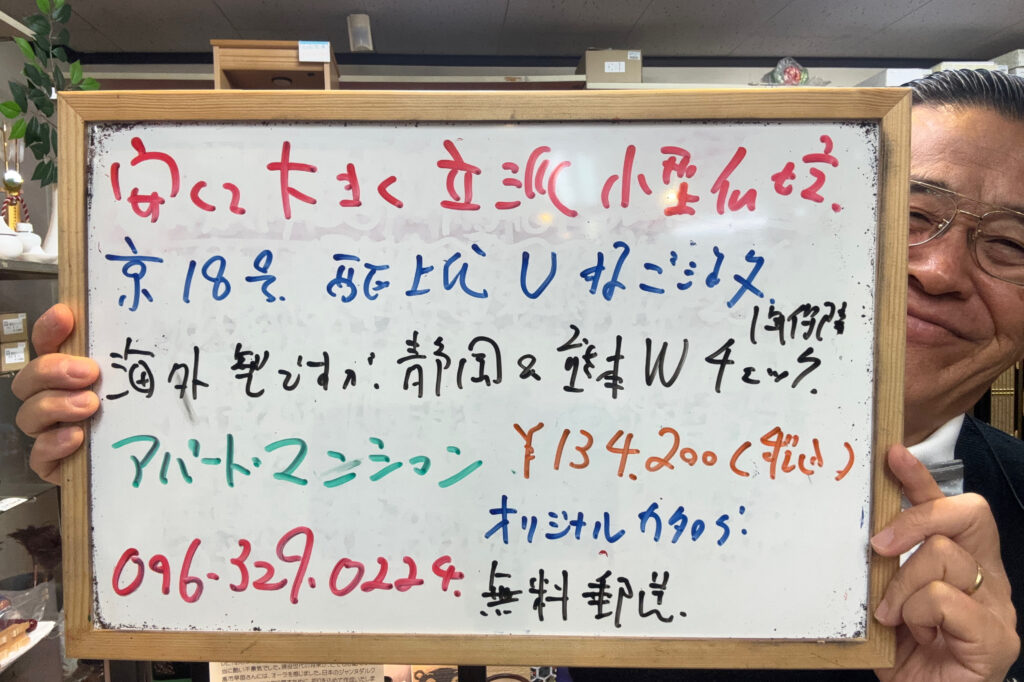 安くて大きく立派小型仏壇.
京18号. 配上代しなご注文
1年保障
海外製ですが、静岡&熊本Wチェック.
アパート・マンション
¥134.200(税込)
オリジナルカタログ:
096-329.0224.
無料郵送.